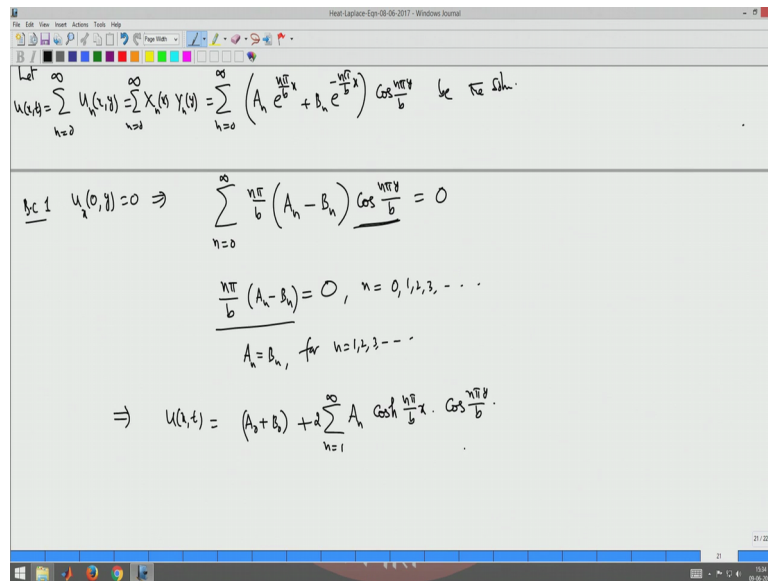 Heat-Laplace-Eqn-08-06-2017 - Windows Journal
File Edit View Insert Actions Tools Help
Page Width
B I
Let
u(x,t) = ∑_{n=0}^{∞} U_n(x,y) = ∑_{n=0}^{∞} X_n(x) Y_n(y) = ∑_{n=0}^{∞} (A_n e^{nπ/b x} + B_n e^{-nπ/b x}) cos nπy/b be the soln.
B.C 1 u_x(0,y) = 0 ⇒ ∑_{n=0}^{∞} nπ/b (A_n - B_n) cos nπy/b = 0
nπ/b (A_n - B_n) = 0, n = 0,1,2,3, - - - .
A_n = B_n, for n=1,2,3 - - -
⇒ u(x,t) = (A_0 + B_0) + 2 ∑_{n=1}^{∞} A_n cosh nπ/b x . cos nπy/b .
21 / 22
21
15:34